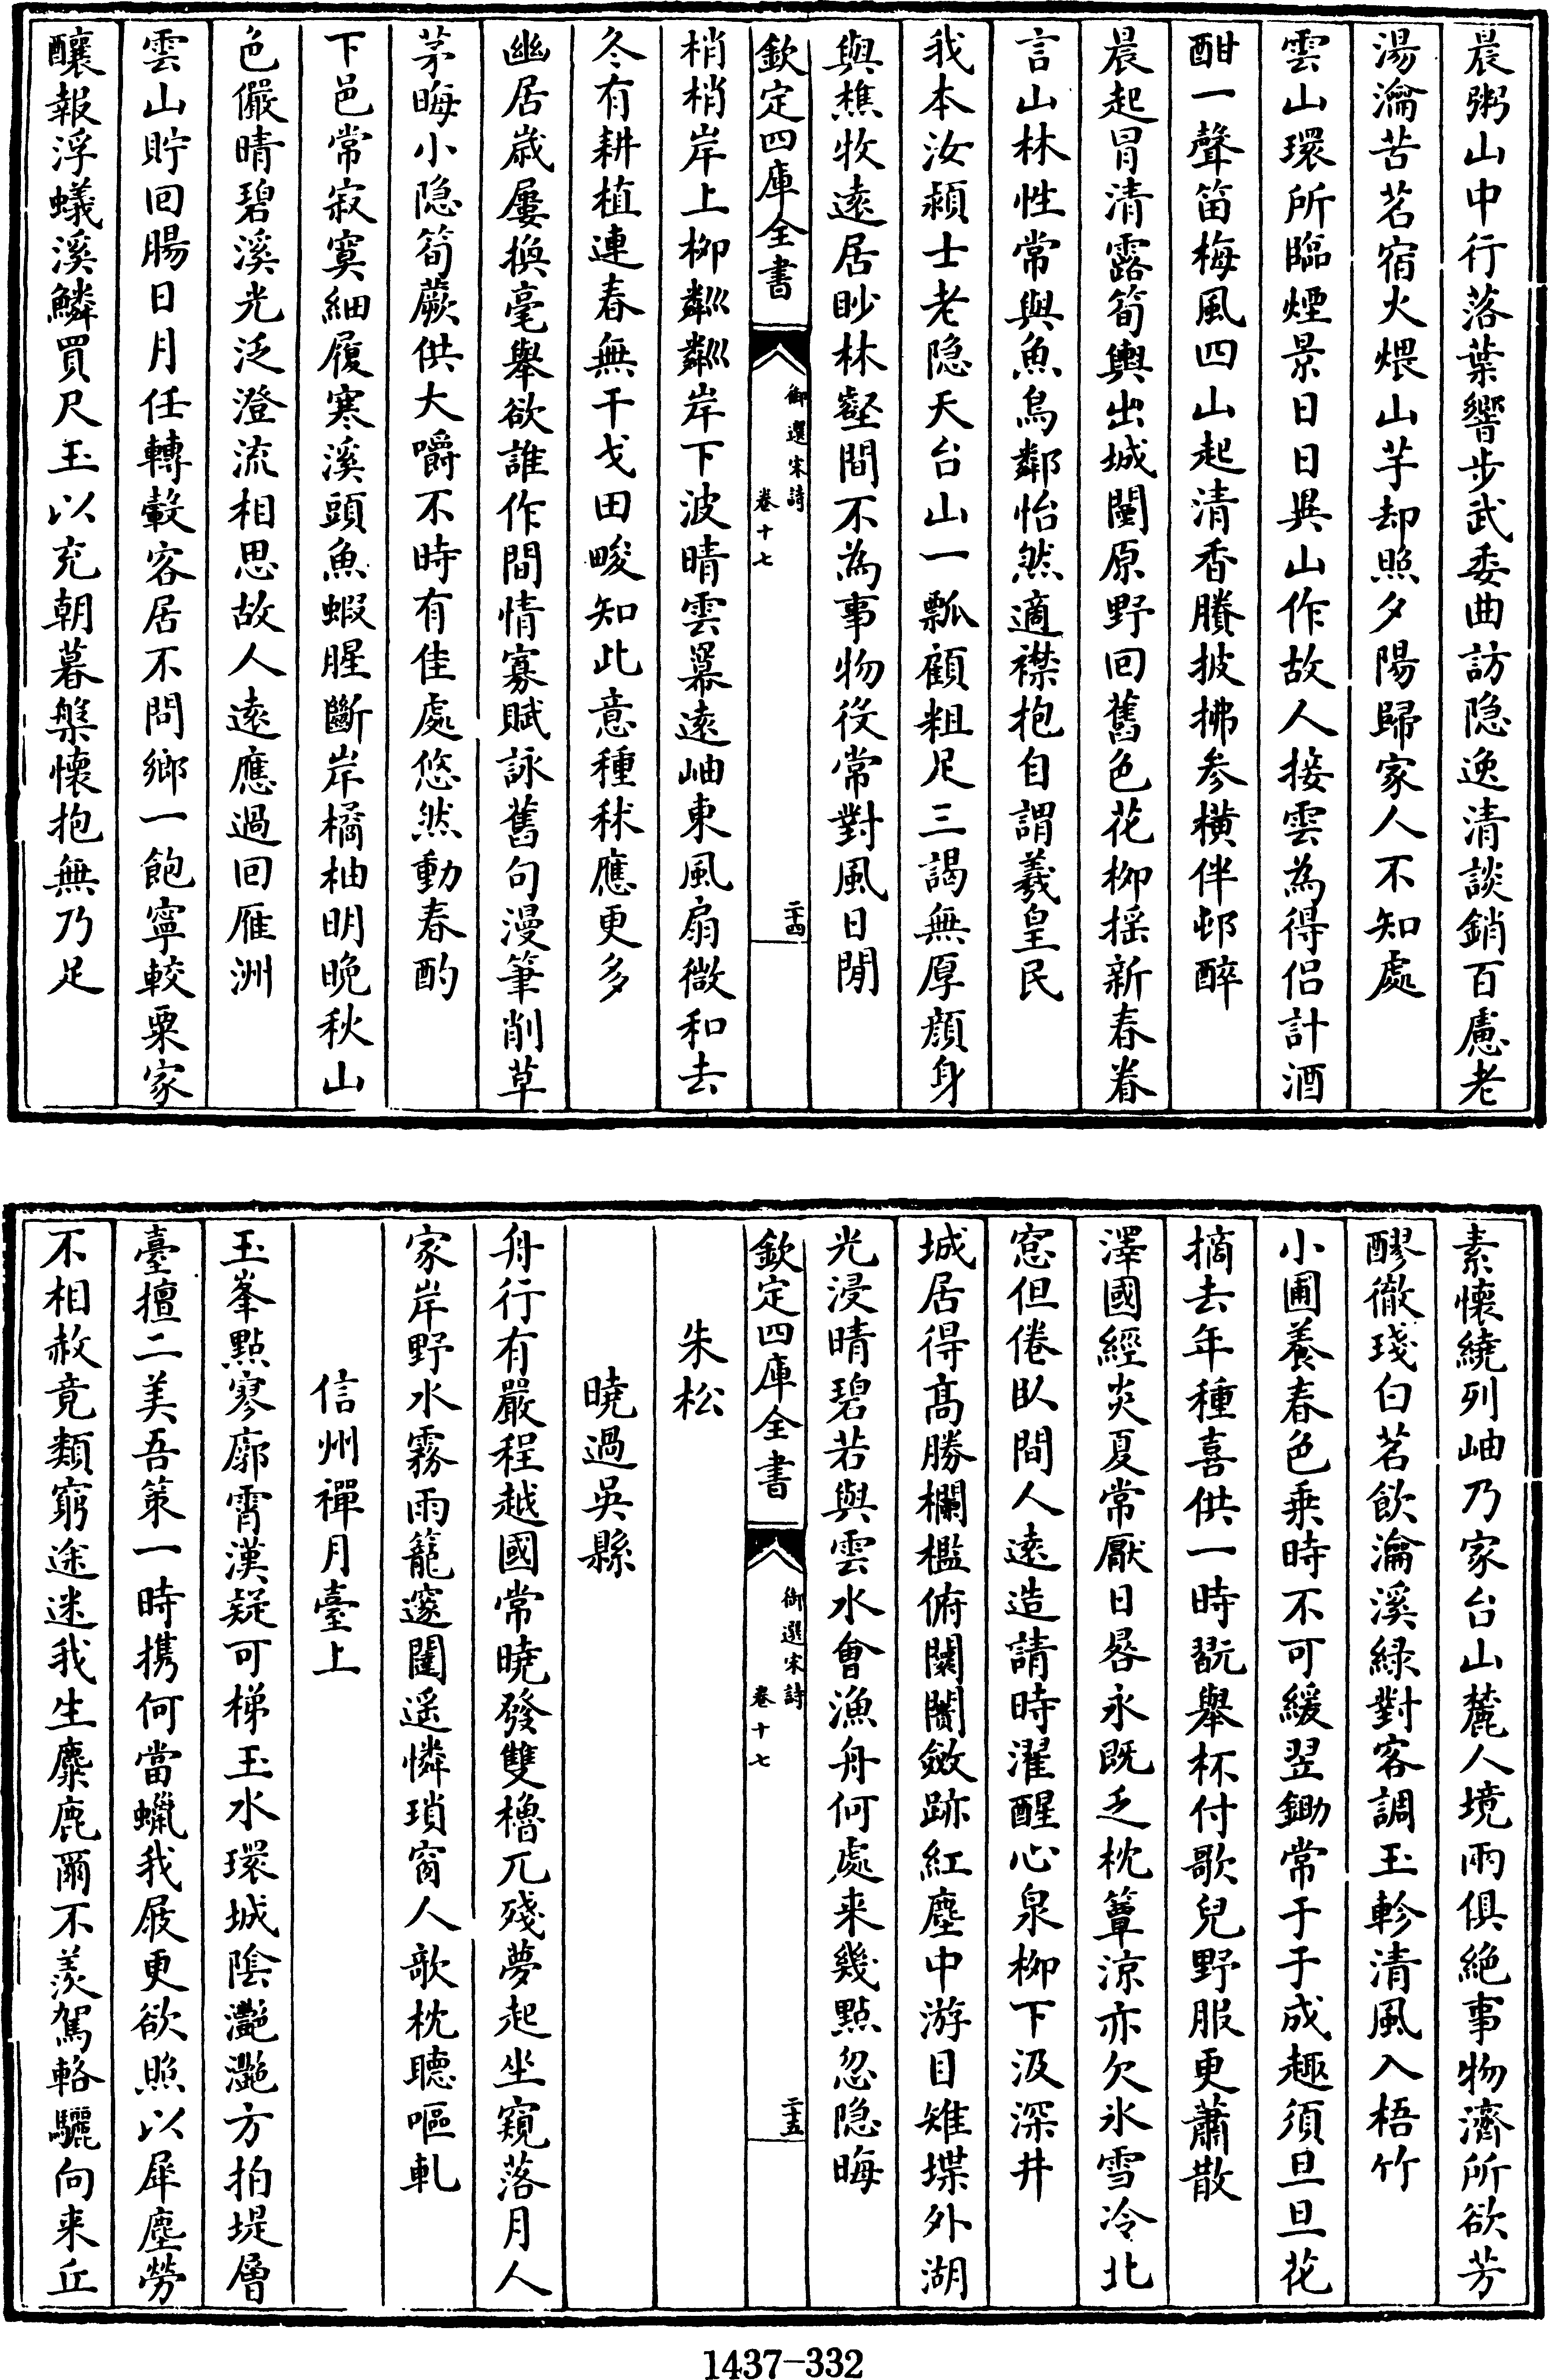 晨粥山中行落葉響步武委曲訪隐逸清談銷百慮老
湯瀹苦茗宿火煨山芋却照夕陽歸家人不知處
雲山環所臨煙景日日異山作故人接雲為得侣計酒
酣一聲笛梅風四山起清香賸披拂参橫伴邨醉
晨起冐清露筍輿出城闉原野回舊色花柳揺新春眷
言山林性常與魚鳥鄰怡然適襟抱自謂羲皇民
我本汝潁士老隐天台山一瓢顧粗足三謁無厚顔身
與樵牧逺居眇林壑間不為事物役常對風日閒
欽定四庫全書
御選宋詩
卷十七
二十四
梢梢岸上柳粼粼岸下波晴雲羃逺岫東風扇微和去
冬有耕植連春無干戈田畯知此意種秫應更多
幽居嵗屢換毫舉欲誰作間情寡賦詠舊句漫筆削草
茅晦小隐筍蕨供大嚼不時有佳處悠然動春酌
下邑常寂寞細履寒溪頭魚蝦腥斷岸橘柚明晚秋山
色儼晴碧溪光泛澄流相思故人逺應過回雁洲
雲山貯回腸日月任轉轂客居不問鄉一飽寧較粟家
釀報浮蟻溪鱗買尺玉以充朝暮槃懷抱無乃足
素懷繞列岫乃家台山麓人境兩俱絶事物濟所欲芳
醪徹琖白茗飲瀹溪緑對客調玉軫清風入梧竹
小圃養春色乗時不可緩翌鋤常于于成趣須旦旦花
摘去年種喜供一時翫舉杯付歌兒野服更蕭散
澤國經炎夏常厭日晷永既乏枕簟涼亦欠氷雪冷北
窓但倦臥間人逺造請時濯醒心泉柳下汲深井
城居得髙勝欄檻俯闤闠斂跡紅塵中游目雉堞外湖
光浸晴碧若與雲水會漁舟何處来幾點忽隐晦
欽定四庫全書
御選宋詩
卷十七
二十五
朱松
曉過吳縣
舟行有嚴程越國常曉發雙櫓兀殘夢起坐窺落月人
家岸野水霧雨籠邃闥遥憐瑣窗人欹枕聴嘔軋
信州禪月臺上
玉峯點寥廓霄漢疑可梯玉水環城隂灔灔方拍堤層
臺擅二美吾策一時携何當蠟我屐更欲照以犀塵勞
不相赦竟類窮途迷我生麋鹿爾不羨駕輅驪向来丘
1437-332